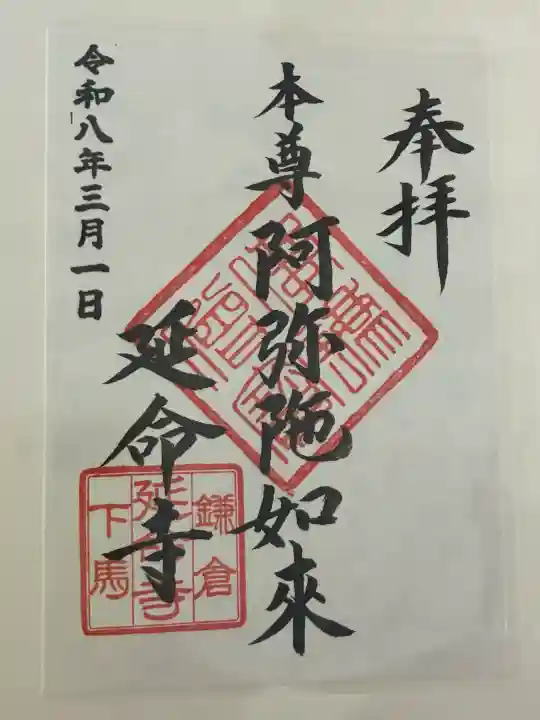 奉拝
本尊阿弥陀如來
延命寺
令和八年三月一日
鎌倉
延命寺
下馬